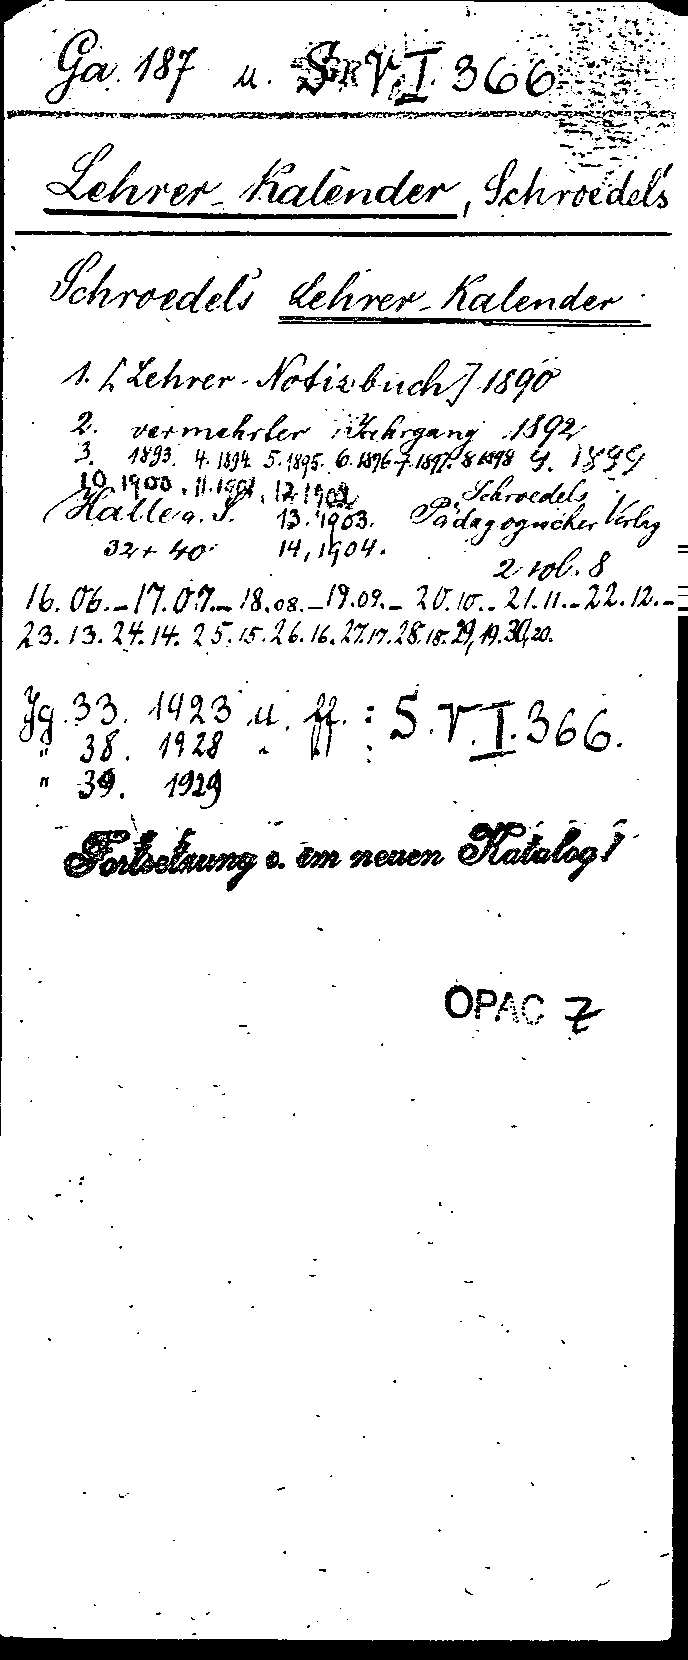 Ga. 187 u. S. V. I. 366
Lehrer-Kalender, Schroedel's
Schroedel's Lehrer-Kalender
1. [Lehrer-Notizbuch] 1890
2. vermehrter Jahrgang 1892
3. 1893. 4. 1894. 5. 1895. 6. 1896. 7. 1897. 8. 1898 9. 1899
10. 1900. 11. 1901. 12. 1902 Schroedels
Halle a. S. 13. 1903. Pädagogischer Verlag
32 + 40 14. 1904.
2 vol. 8
16. 06. - 17. 07. - 18. 08. - 19. 09. - 20. 10. - 21. 11. - 22. 12. -
23. 13. 24. 14. 25. 15. 26. 16. 27. 17. 28. 18. 29. 19. 30. 20.
Jg. 33. 1923 u. ff. : S. V. I. 366.
" 38. 1928 " " :
" 39. 1929
Fortsetzung s. im neuen Katalog!
OPAC Z